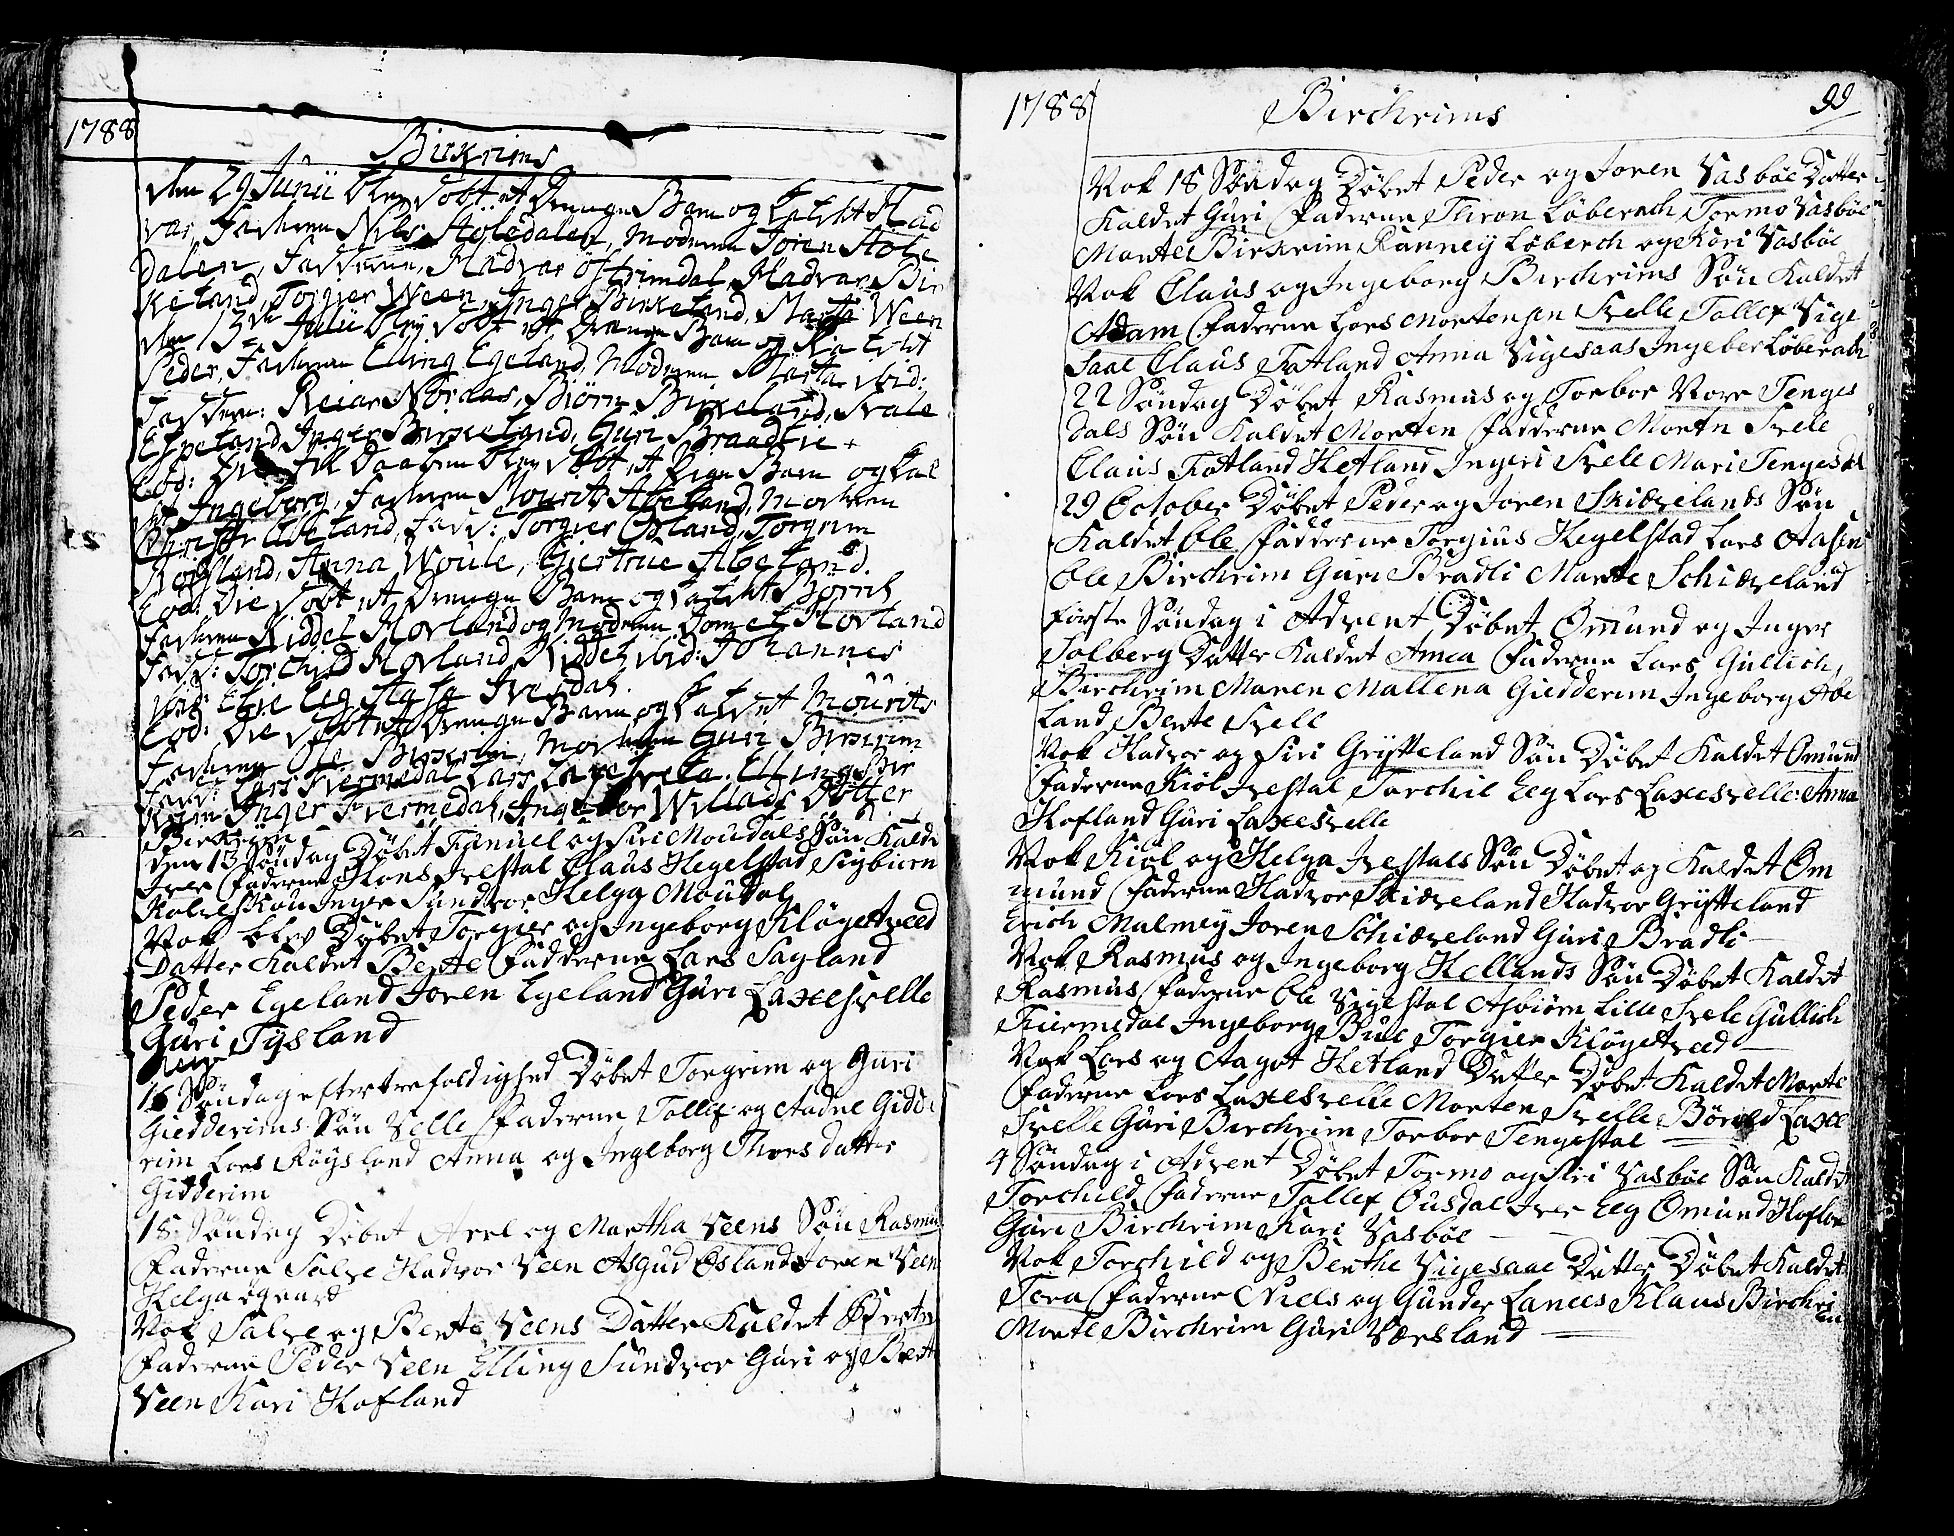 1788
Birkrims
den 29 Junii blev döbt et Drenge Barn og kaldt Had
var, Faderen Nils Stöledalen, Moderen Joren Stöle
dalen, Fadderne, Hadvar Östrimdal, Hadvar Bir
keland, Torgier Ween, Inger Birkeland, Marta Ween
den 13de Julii blev döbt et Drenge Barn og kaldt
Peder, Faderen Elling Egeland, Moderen Marta ibid:
Fadderne: Reiar Nördaas, Biörn Birkeland, Svale
Espeland, Inger Birkeland, Guri Braadlie
Eod: Die fik Daaben blev döbt et Pige Barn og kal
det Ingeborg, Faderen Mourits Abeland, Moderen
Abeland, Fadd: Torgier Össland, Torgrim
Röysland, Anna Woule, Giertrue Abeland.
Eod: Die döbt et Drenge Barn og kaldt Börild
Faderen Kiddel Hovland og Moderen Hovland
Fadd: Torchild Hovland, Kiddel ibid: Johannes
ibid: Elie Eeg, Ivesdal.
Eod: Die döbt et Drenge Barn og kaldet Mourits
Faderen Ole Birkrim, Moderen Guri Birkrim
Fadd: Lars Kiermedal, Lars Laxesvela, Elling Bir
krim Inger Kiermedal, Ingebor Willads Dotter
Birkrim
den 13 Söndag Döbet Samuel og Siri Moudals Sön Kaldt
Iver Faderne Hans Ivestal Claus Hegelstad Sigbiörn
Inger Sundvor Helga Moudal
Nok blev Döbet Torgier og Ingeborg Klögetveed
Datter Kaldet Berte Fadderne Lars Sagland
Peder Egeland Joren Egeland Guri Laxesvelle
Guri Tysland
16 Söndag efter trefoldighed Döbet Torgrim og Guri
Giedderims Sön Velle Faderne Tollef og Aadne Gidde
rim Lars Röysland Anna og Ingeborg Thorsdatter
Gidderim
18 Söndag Döbet Arel og Martha Veens Sön Rasmus
Faderne Salve Hadvor Veen Asgud Össland Joren Veen
Helga ögaard
Nok Salve og Berte Veens Datter Kaldet Berte
Faderne Peder Veen Elling Sundvor Guri og Berte
Veen Kari Hofland
1788
Birchrims
99
Nok 18 Söndag Döbet Peder og Joren Vasböe Datter
Kaldet Guri Faderne Thron Löberach Tormo Vasböe
Marte Birkrim Ranney Löberch og Kari Vasböe
Nok Claus og Ingeborg Birchrims Sön Kaldet
Adam Faderne Lars Mortensen Svelle Tollef Vige
saae Claus Fatland Anna Vigesaas Ingeber Löberach
22 Söndag Döbet Rasmus og Torbor Norr Tenges
dals Sön Kaldet Morten Fadderne Mortn Svele
Claus Fatland Hetland Ingeri Svele Mari Tengesdal
29 October Döbet Peder og Joren Skiævelands Sön
Kaldet Ole Fadderne Torgius Hegelstad Lars Aasen
Ole Birchrim Guri Bradli Marte Schiæveland
förste Söndag i Advent Döbet Omund og Inger
Solberg Datter Kaldet Anna Faderne Lars Gullich
Birchrim Maren Mallena Giedderim Ingeborg Abe
land Berte Svele
Nok Hadvor og Siri Grytteland Sön Döbet Kaldet Omund
Faderne Kiöl Ivestal Torchil Eeg Lars Laxesvelle Anna
Hofland Guri Laxesvelle
Nok Kiöl og Helga Ivestals Sön Döbet og Kaldet Om
mund Faderne Hadvor Skiæveland Hadvor Grytteland
Erich Malmey Joren Schiæveland Guri Bradli
Nok Rasmus og Ingeborg Hellands Sön Döbet Kaldet
Rasmus Faderne Ole Vigestal Asbiörn Lille Svele Gullich
Kiermedal Ingeborg Bue Torgier Klögetveed
Nok Lars og Aagot Hetland Datter Döbet Kaldet Marte
Faderne Lars Laxesvelle Morten Svelle Börild Laxe
svelle Guri Birchrim Torbor Tengestal
4 Söndag i Advent Döbet Tormo og Siri Vasböe Sön Kaldet
Torchild Faderne Tollef Ousdal Iver Eeg Omund Hoflan
Guri Birchrim Kari Vasböe
Nok Torchild og Berthe Vigesaae Datter Döbet Kaldet
Tora Faderne Niels og Gunder Lances Klaus Birchri
m
Marte Birchrim GuriVærsland